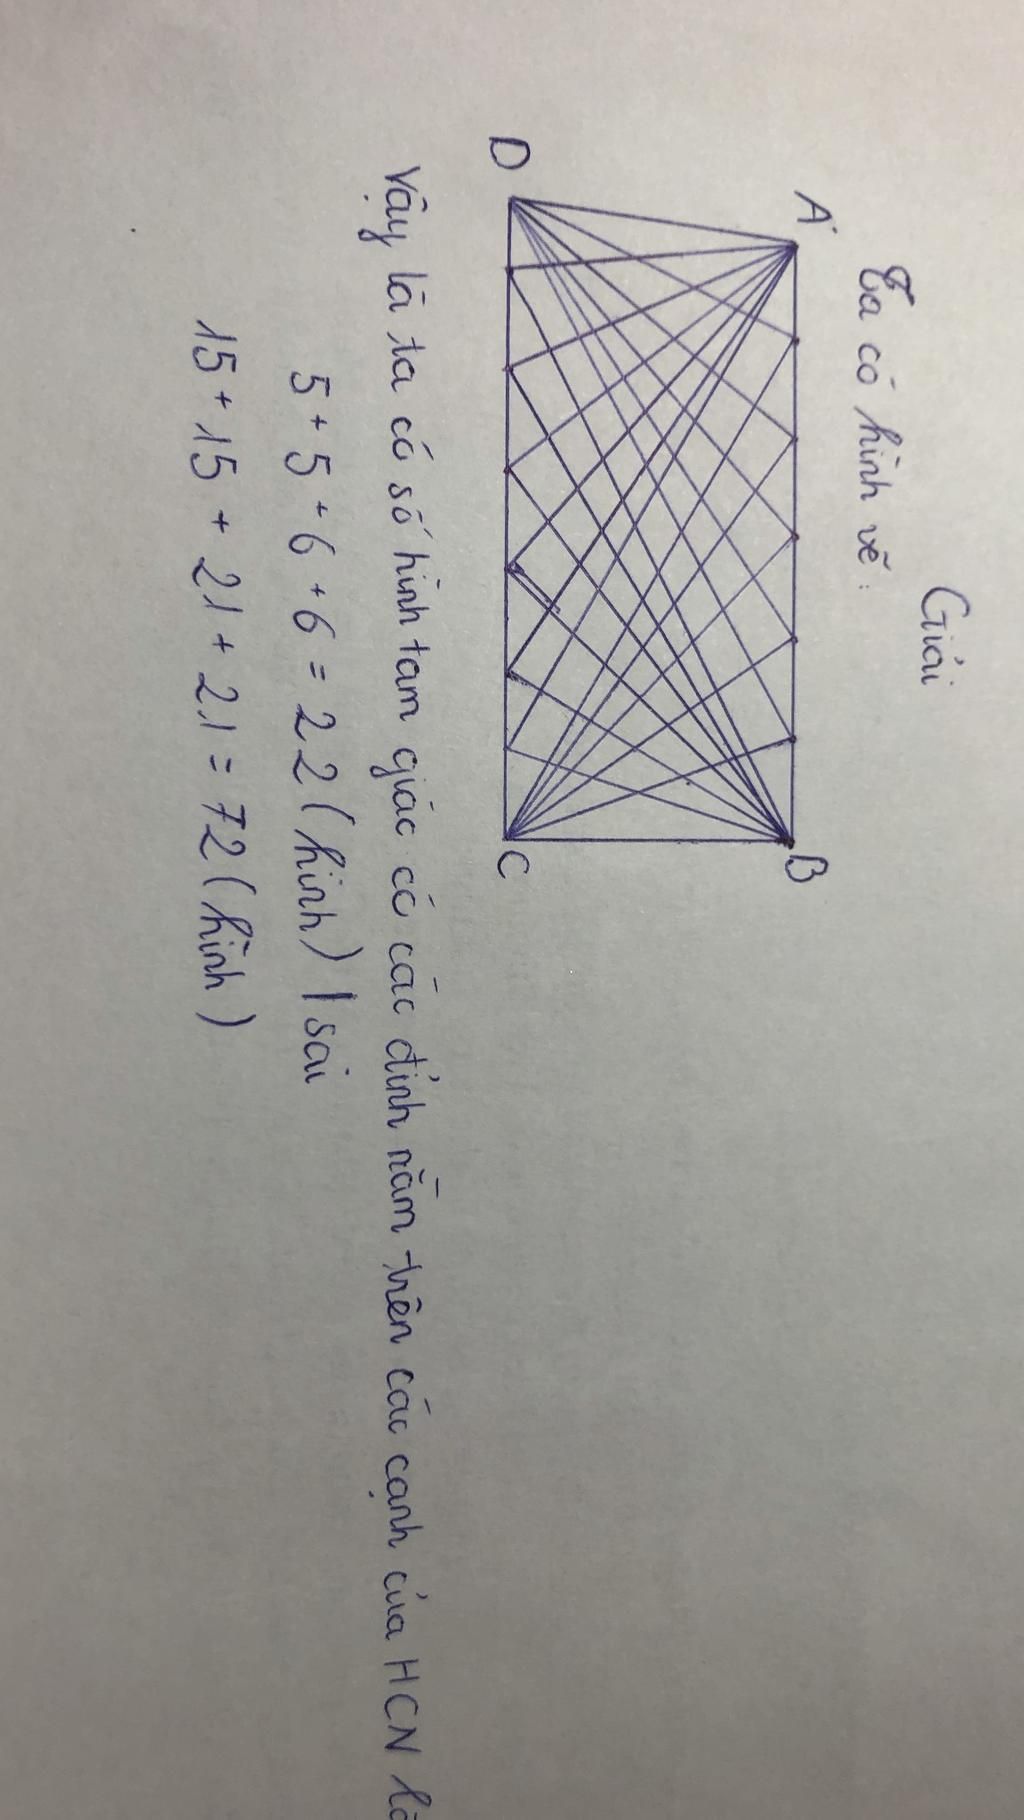 Giải
Ta có hình vẽ:
A
B
D
C
Vậy là ta có số hình tam giác có các đỉnh nằm trên các cạnh của HCN là
5 + 5 + 6 + 6 = 22 (hình) | sai
15 + 15 + 21 + 21 = 72 (hình)